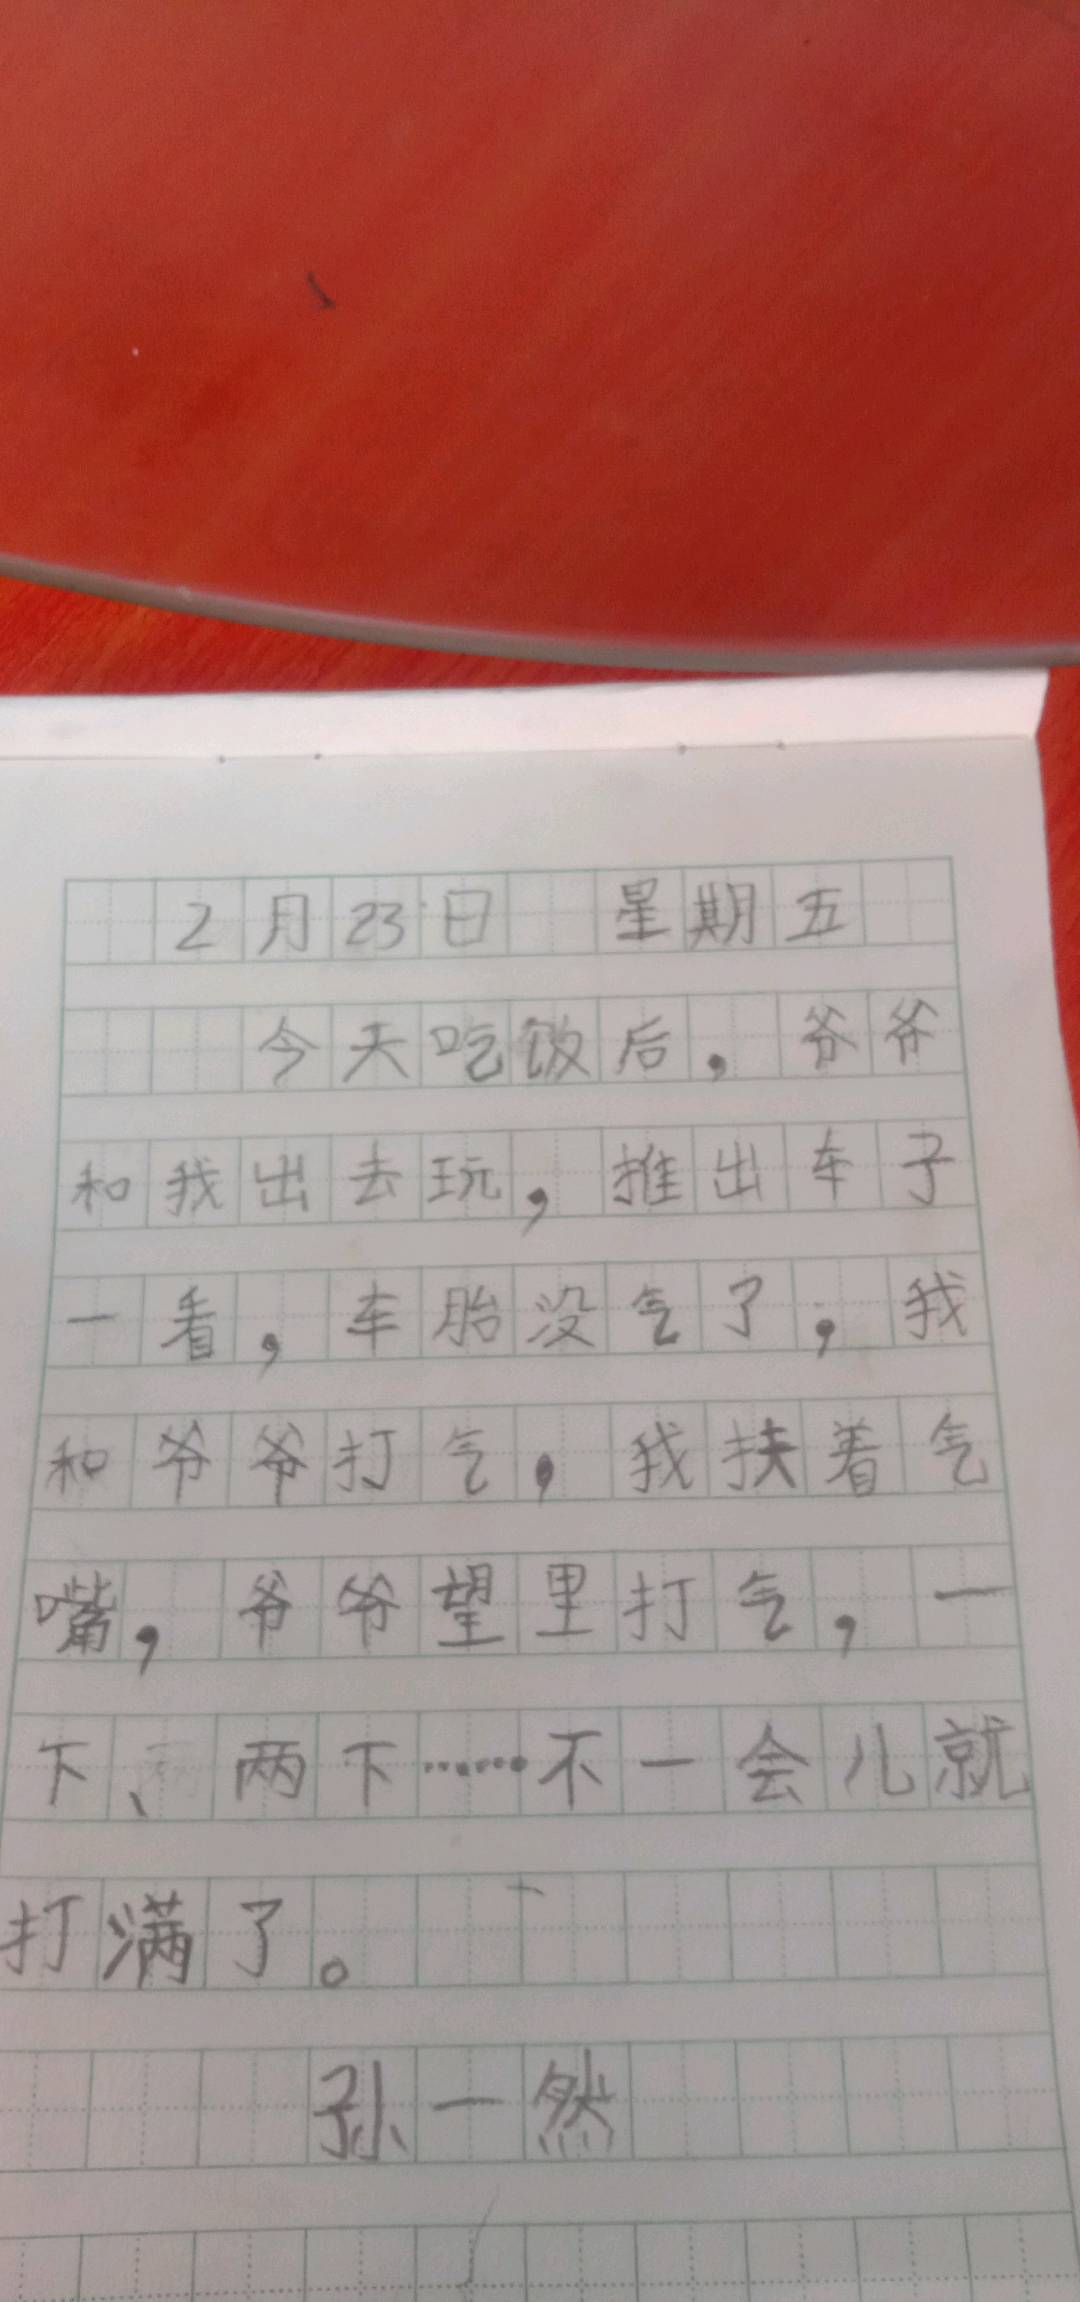 2月23日 星期五
今天吃饭后，爷爷
和我出去玩，推出车子
一看，车胎没气了；我
和爷爷打气，我扶着气
嘴，爷爷望里打气，一
下、两下……不一会儿就
打满了。
孙一然